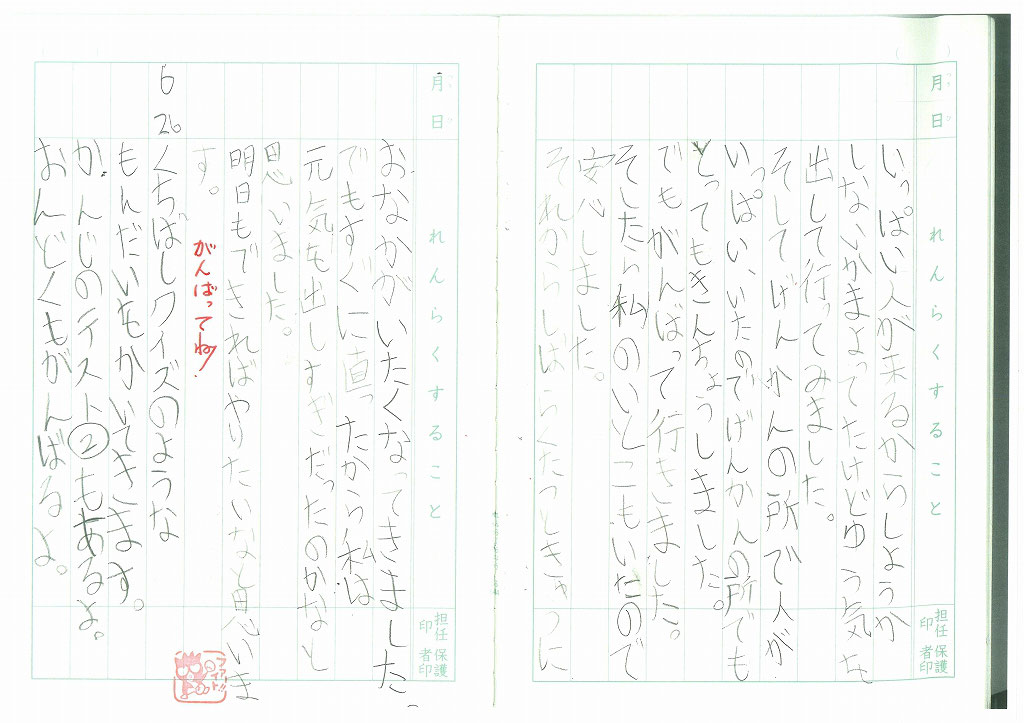 月
日
れんらくすること
担任印
保護者印
いっぱい人が来るからしょうか
しないかまよってたけどゆう気を
出して行ってみました。
そしてげんかんの所で人が
いっぱい、いたのでげんかんの所でも
とってもきんちょうしました。
でもがんばって行きました。
そしたら私のいとこもいたので
安心しました。
それからしばらくたつときゅうに
月
日
れんらくすること
担任印
保護者印
おなかがいたくなってきました。
でもすぐに直ったから私は
元気を出しすぎだったのかなと
思いました。
明日もできればやりたいなと思いま
す。
がんばってね!
ファイト!!
6
26
くちばしクイズのような
もんだいをかいてきます。
かんじのテスト②もあるよ。
おんどくもがんばるよ。